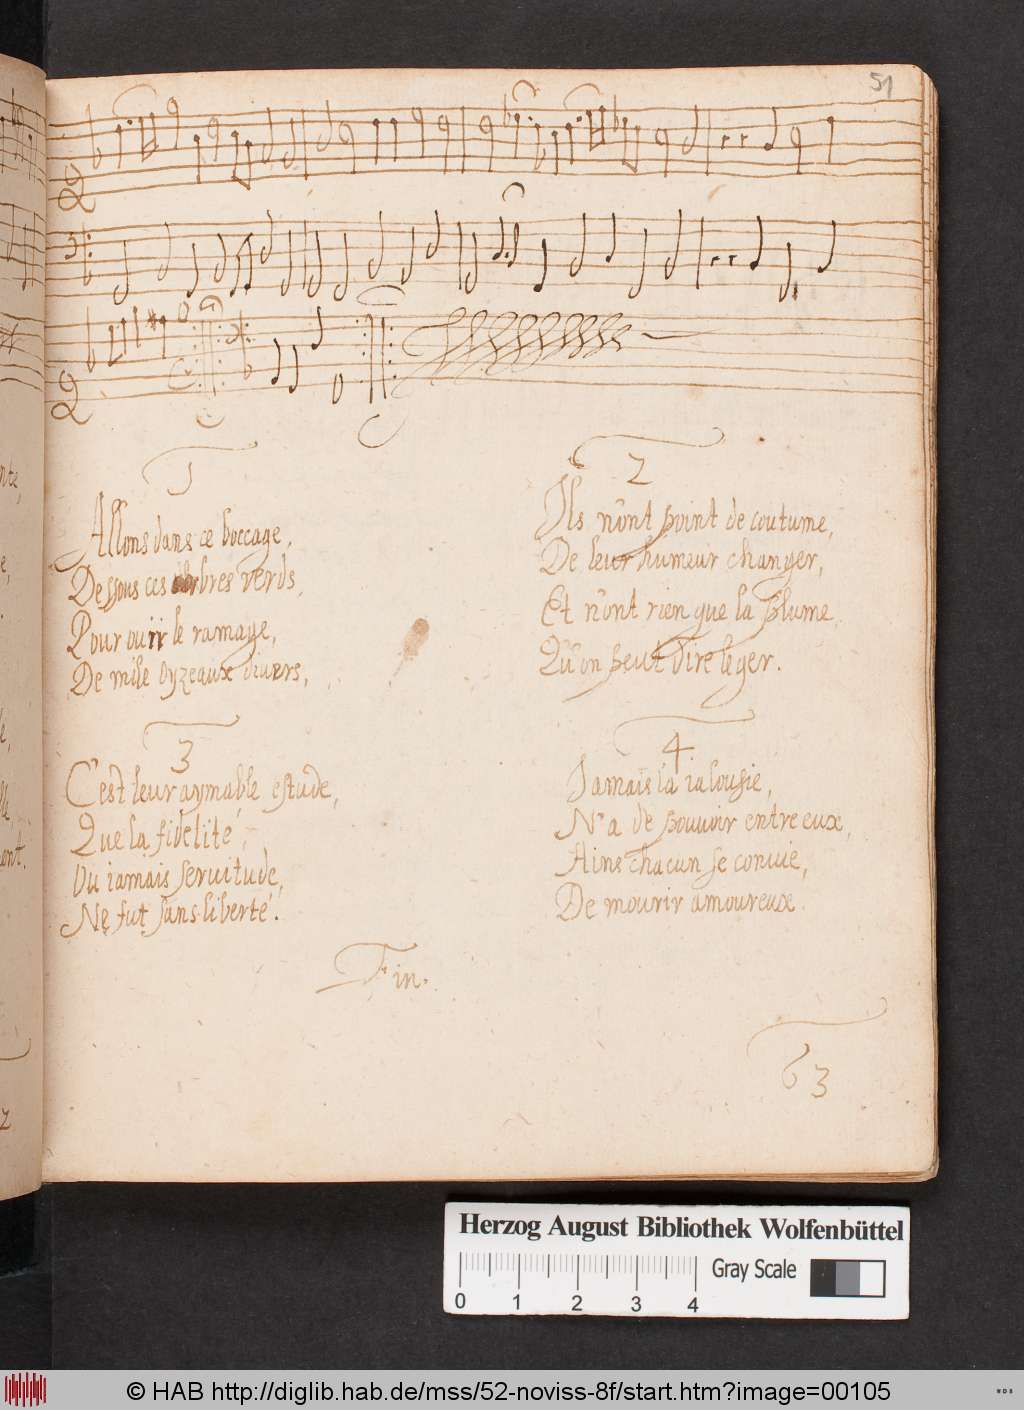 51
1
Allons dans ce boccage,
Dessous ces arbres verds,
Pour ouïr le ramage,
De mile oyzeaux divers,
2
Ils n'ont point de coutume,
De leur humeur changer,
Et n'ont rien que la plume
Qu'on peut dire leger.
3
C'est leur aymable estude,
Que la fidelité,
Ou iamais servitude,
Ne fut sans liberté.
4
Jamais la ialousie,
N'a de pouvoir entre eux,
Ains chacun se convie,
De mourir amoureux.
Fin.
63
Herzog August Bibliothek Wolfenbüttel
Gray Scale
0 1 2 3 4
© HAB http://diglib.hab.de/mss/52-noviss-8f/start.htm?image=00105